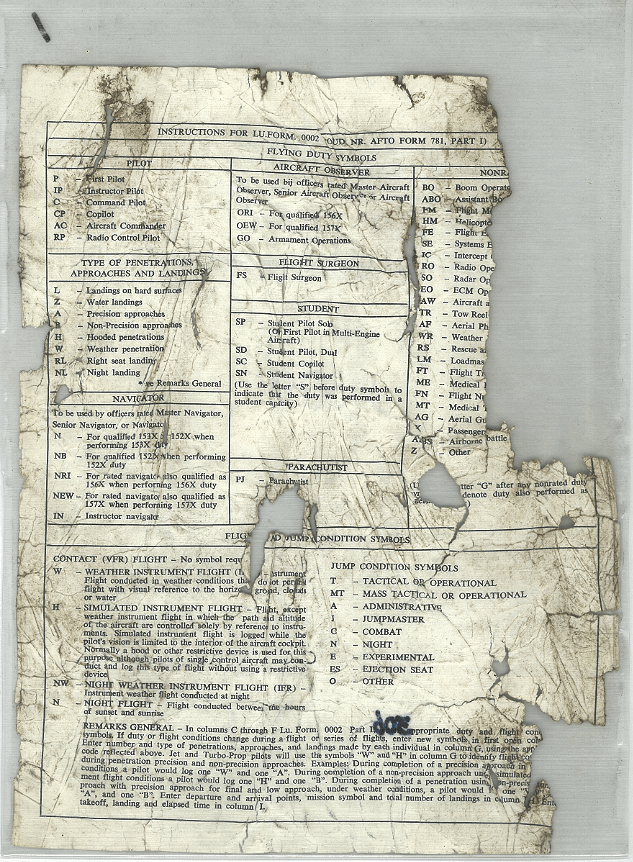 INSTRUCTIONS FOR LU.FORM. 0002 OUD. NR. AFTO FORM 781, PART I)
FLYING DUTY SYMBOLS
PILOT
P – First Pilot
IP – Instructor Pilot
C – Command Pilot
CP – Copilot
AC – Aircraft Commander
RP – Radio Control Pilot
TYPE OF PENETRATIONS,
APPROACHES AND LANDINGS
L – Landings on hard surfaces
Z – Water landings
A – Precision approaches
B – Non-Precision approaches
H – Hooded penetrations
W – Weather penetration
RL – Right seat landing
NL – Night landing
* se Remarks General
NAVIGATOR
To be used by officers rated Master Navigator,
Senior Navigator, or Navigator
N – For qualified 153X or 152X when
performing 153X duty
NB – For qualified 152X when performing
152X duty
NRI – For rated navigator also qualified as
156X when performing 156X duty
NEW – For rated navigator also qualified as
157X when performing 157X duty
IN – Instructor navigator
AIRCRAFT OBSERVER
To be used bij officers rated Master Aircraft
Observer, Senior Aircraft Observer or Aircraft
Observer
ORI – For qualified 156X
OEW – For qualified 157X
GO – Armament Operations
FLIGHT SURGEON
FS – Flight Surgeon
STUDENT
SP – Student Pilot Solo
(Or First Pilot in Multi-Engine
Aircraft)
SD – Student Pilot, Dual
SC – Student Copilot
SN – Student Navigator
(Use the letter "S" before duty symbols to
indicate that the duty was performed in a
student capacity)
PARACHUTIST
PJ – Parachutist
NONRA
BO – Boom Operat
ABO – Assistant Bo
FM – Flight M
HM – Helicopte
FE – Flight E
SE – Systems E
IC – Intercept
RO – Radio Ope
SO – Radar Op
EO – ECM Ope
AW – Aircraft a
TR – Tow Reel
AF – Aerial Ph
WR – Weather
RS – Rescue a
LM – Loadmas
FT – Flight T
ME – Medical
FN – Flight Nu
MT – Medical T
AG – Aerial Gu
X – Passenger
ABS – Airborne battle
Z – Other
(U tter "G" after any nonrated duty
denote duty also performed as
FLIG D JUMP CONDITION SYMBOLS
CONTACT (VFR) FLIGHT – No symbol req
W – WEATHER INSTRUMENT FLIGHT (I – Instrument
Flight conducted in weather conditions tha do not permit
flight with visual reference to the horiz ground, clouds
or water
H – SIMULATED INSTRUMENT FLIGHT – Flight, except
weather instrument flight in which the path aid altitude
of the aircraft are controlled solely by reference to instru-
ments. Simulated instrument flight is logged while the
pilot's vision is limited to the interior of the aircraft cockpit.
Normally a hood or other restrictive device is used for this
purpose although pilots of single control aircraft may con-
duct and log this type of flight without using a restrictive
device
NW – NIGHT WEATHER INSTRUMENT FLIGHT (IFR) –
Instrument weather flight conducted at night
N – NIGHT FLIGHT – Flight conducted between the hours
of sunset and sunrise
JUMP CONDITION SYMBOLS
T – TACTICAL OR OPERATIONAL
MT – MASS TACTICAL OR OPERATIONAL
A – ADMINISTRATIVE
I – JUMPMASTER
C – COMBAT
N – NIGHT
E – EXPERIMENTAL
ES – EJECTION SEAT
O – OTHER
REMARKS GENERAL – In columns C through F Lu. Form. 0002 Part I appropriate duty and flight con
symbols. If duty or flight conditions change during a flight or series of flights, enter new symbols in first open col
Enter number and type of penetrations, approaches, and landings made by each individual in column G, using the app
code reflected above. Jet and Turbo-Prop pilots will use the symbols "W" and "H" in column G to identify flight con
during penetration precision and non-precision approaches. Examples: During completion of a precision approach in
conditions a pilot would log one "W" and one "A". During completion of a non-precision approach using simulated
ment flight conditions a pilot would log one "H" and one "B". During completion of a penetration using non-preci
proach with precision approach for final and low approach, under weather conditions, a pilot would one "
"A", and one "B". Enter departure and arrival points, mission symbol and total number of landings in column Ent
takeoff, landing and elapsed time in column L